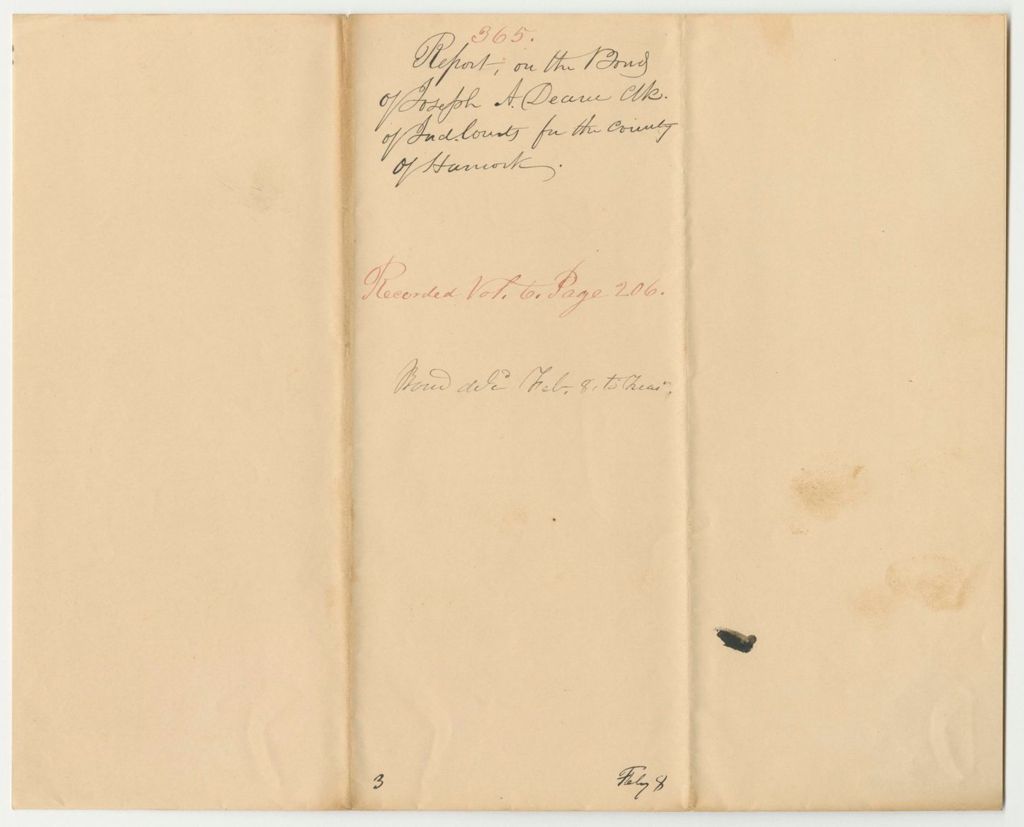 365.
Report, on the Bond
of Joseph A. Deane Clk.
of Jud. Courts for the County
of Hancock.
Recorded Vol. 6. Page 206.
Bond del'd Feb. 8. to Treas'r.
3
Feby 8